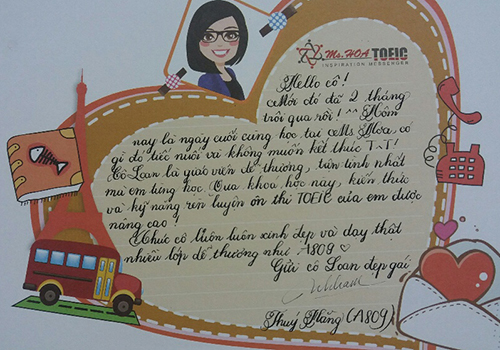 Ms.HOA TOEIC
INSPIRATION MESSENGER
Hello cô!
Mới đó đã 2 tháng
trôi qua rồi! ^^ Hôm
nay là ngày cuối cùng học tại Ms Hoa, có
gì đó tiếc nuối và không muốn kết thúc T.T!
Cô Loan là giáo viên dễ thương, tận tình nhất
mà em từng học. Qua khoá học này, kiến thức
và kỹ năng rèn luyện ôn thi TOEIC của em được
nâng cao!
Chúc cô luôn luôn xinh đẹp và dạy thật
nhiều lớp dễ thương như A809 ♡
Gửi cô Loan đẹp gái,
Thuý Hằng (A809)